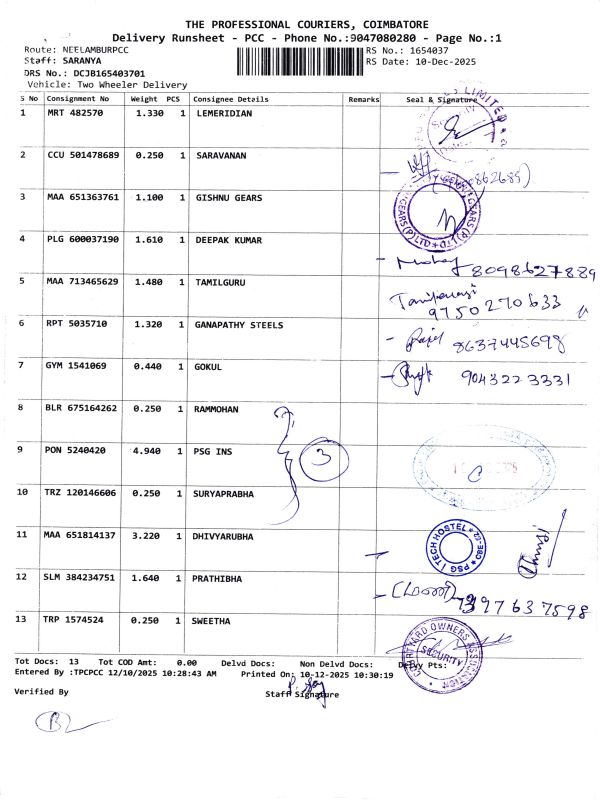 THE PROFESSIONAL COURIERS, COIMBATORE
Delivery Runsheet - PCC - Phone No.:9047080280 - Page No.:1
Route: NEELAMBURPCC RS No.: 1654037
Staff: SARANYA RS Date: 10-Dec-2025
DRS No.: DCJB165403701
Vehicle: Two Wheeler Delivery
S No Consignment No Weight PCS Consignee Details Remarks Seal & Signature
1 MRT 482570 1.330 1 LEMERIDIAN
2 CCU 501478689 0.250 1 SARAVANAN
3 MAA 651363761 1.100 1 GISHNU GEARS
GEARS (P) LTD
4 PLG 600037190 1.610 1 DEEPAK KUMAR
8098627889
5 MAA 713465629 1.480 1 TAMILGURU
9750270633
6 RPT 5035710 1.320 1 GANAPATHY STEELS
8637445698
7 GYM 1541069 0.440 1 GOKUL
9043223331
8 BLR 675164262 0.250 1 RAMMOHAN
9 PON 5240420 4.940 1 PSG INS
3
10 TRZ 120146606 0.250 1 SURYAPRABHA
11 MAA 651814137 3.220 1 DHIVYARUBHA
PSG ITECH HOSTEL CBE-62
12 SLM 384234751 1.640 1 PRATHIBHA
(மணி)
7397637598
13 TRP 1574524 0.250 1 SWEETHA
YARD OWNERS ASSOCIATION
SECURITY
Tot Docs: 13 Tot COD Amt: 0.00 Delvd Docs: Non Delvd Docs: Delvy Pts:
Entered By :TPCPCC 12/10/2025 10:28:43 AM Printed On: 10-12-2025 10:30:19
Verified By Staff Signature